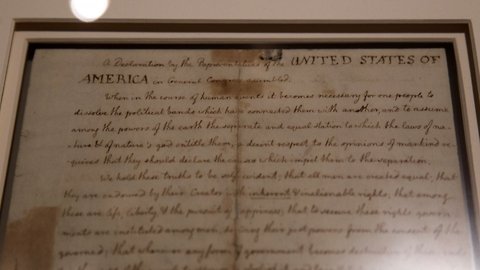 A Declaration by the Representatives of the UNITED STATES OF
AMERICA in General Congress assembled.
When in the course of human events it becomes necessary for one people to
dissolve the political bands which have connected them with another, and to assume
among the powers of the earth the separate and equal station to which the laws of na-
ture & of nature's god entitle them, a decent respect to the opinions of mankind re-
quires that they should declare the causes which impel them to the separation.
We hold these truths to be self-evident; that all men are created equal; that
they are endowed by their Creator with inherent & inalienable rights; that among
these are life, liberty, & the pursuit of happiness; that to secure these rights, govern-
ments are instituted among men, deriving their just powers from the consent of the
governed; that whenever any form of government becomes destructive of these ends